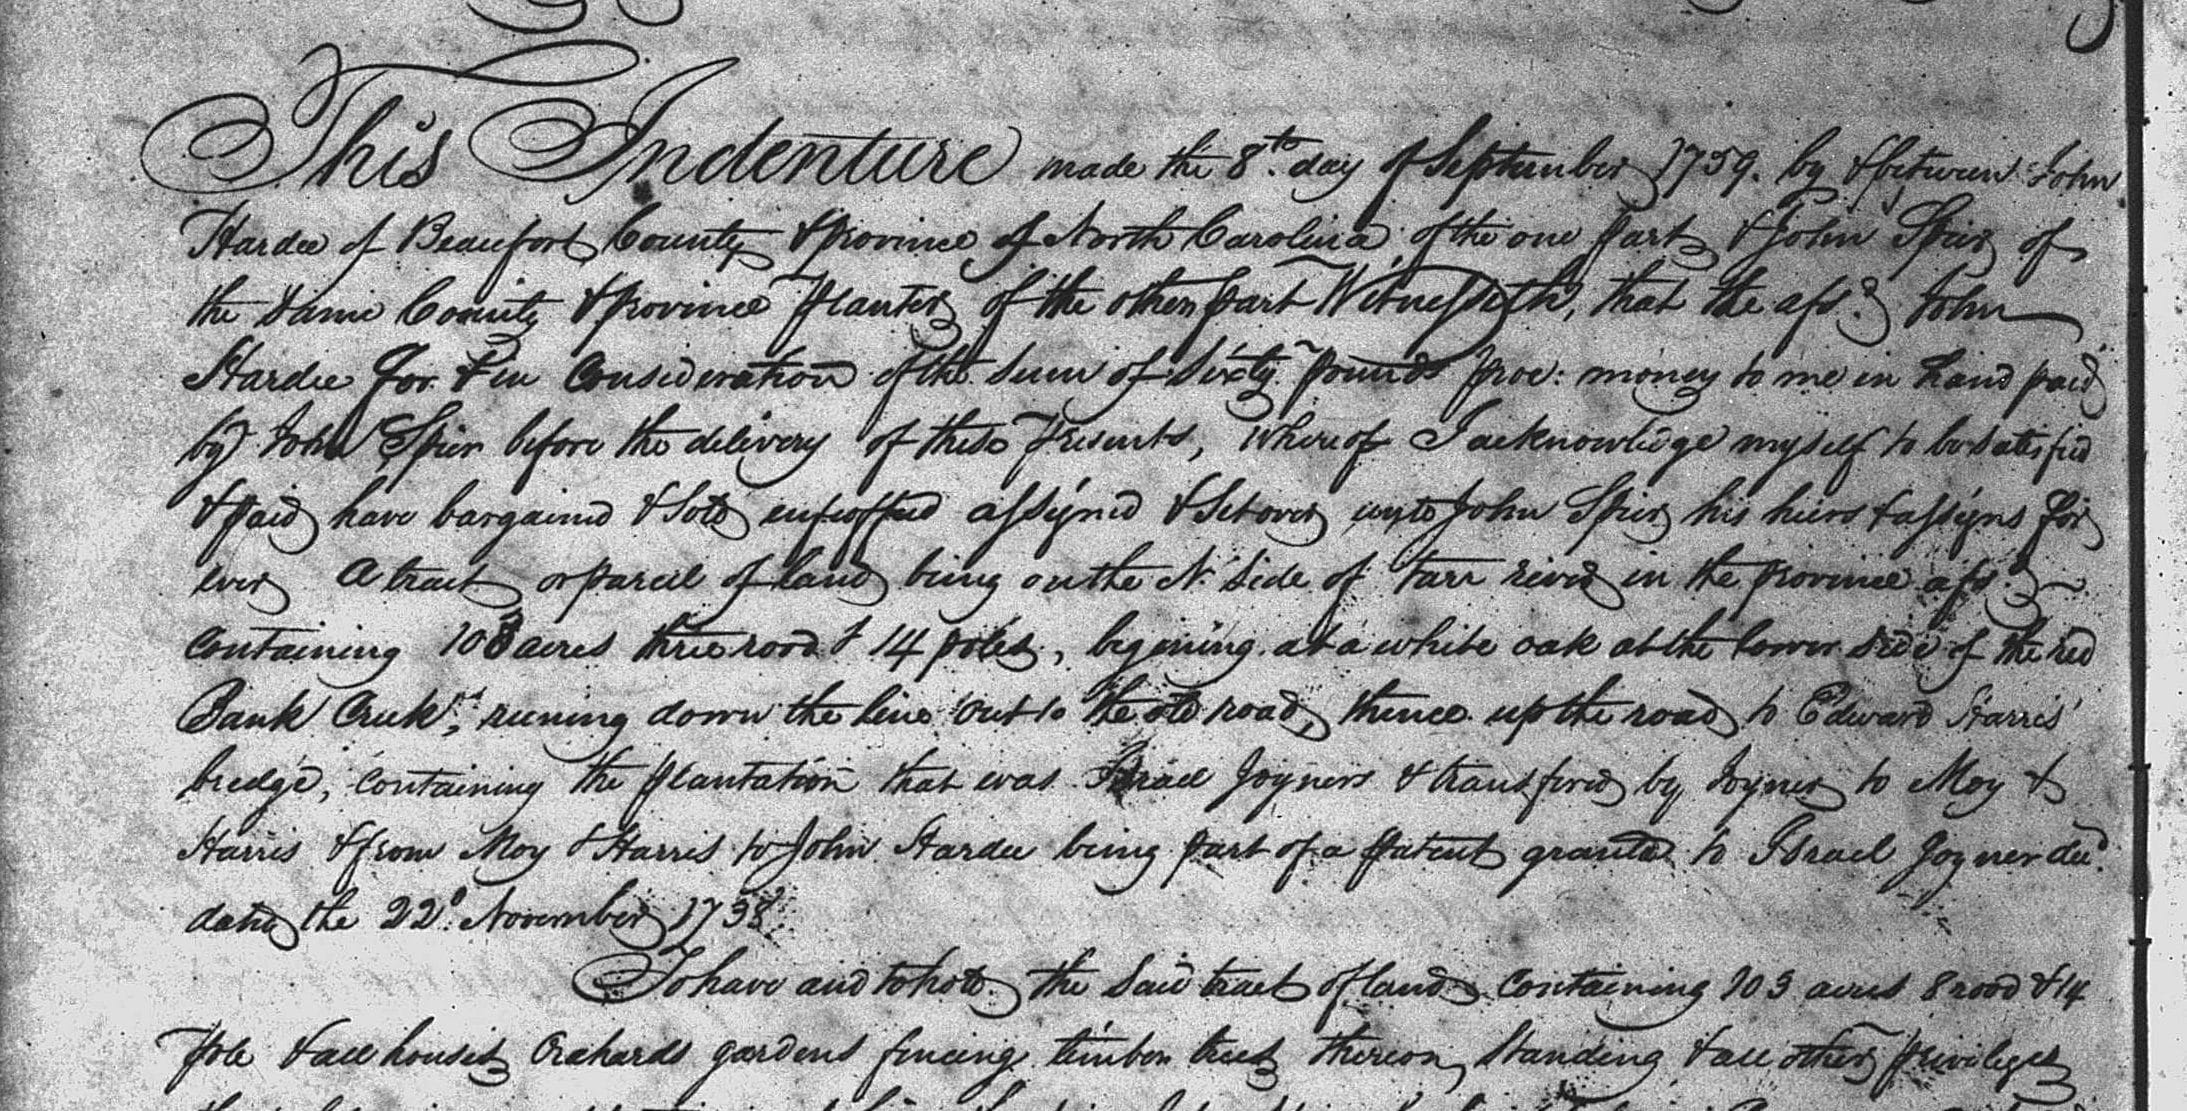 This Indenture made the 8th day of September 1759. by & between John
Hardee of Beaufort County & province of North Carolina of the one part & John Spier of
the Same County & province planter of the other part Witnesseth, that the afsd John
Hardee for & in Consideration of the Sum of Sixty pounds proc: money to me in hand paid
by John Spier before the delivery of these presents, whereof I acknowledge myself to be Satisfied
& paid have bargained & Sold enfeoffed assigned & Set over unto John Spier his heirs & assigns for
ever a tract or parcel of land being on the N. Side of Tarr river in the province afsd
Containing 103 acres three rood & 14 poles, begining at a white oak at the lower Side of the red
Bank Creek, runing down the line out to the old road, thence up the road to Edward Harris'
bredge, Containing the plantation that was Israel Joyners & transfired by Joyner to Moy &
Harris & from Moy & Harris to John Hardee being part of a patent granted to Israel Joyner decd
dated the 22d November 1738.
To have and to hold the Said tract of land Containing 103 acres 8 rood & 14
pole & all houses Orchards gardens fencing timber trees thereon Standing & all other privileges